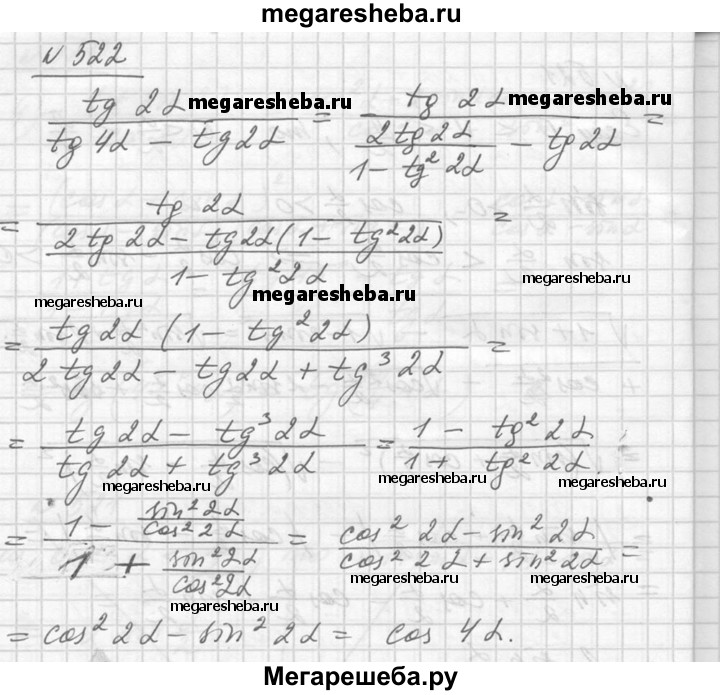 megaresheba.ru
N 522
tg 2α / (tg 4α − tg 2α) = tg 2α / (2 tg 2α / (1 − tg² 2α) − tg 2α) =
megaresheba.ru megaresheba.ru
= tg 2α / ((2 tg 2α − tg 2α (1 − tg² 2α)) / (1 − tg² 2α)) =
megaresheba.ru megaresheba.ru megaresheba.ru
= tg 2α (1 − tg² 2α) / (2 tg 2α − tg 2α + tg³ 2α) =
= (tg 2α − tg³ 2α) / (tg 2α + tg³ 2α) = (1 − tg² 2α) / (1 + tg² 2α)
megaresheba.ru megaresheba.ru
= (1 − sin² 2α / cos² 2α) / (1 + sin² 2α / cos² 2α) = (cos² 2α − sin² 2α) / (cos² 2α + sin² 2α) =
megaresheba.ru megaresheba.ru
= cos² 2α − sin² 2α = cos 4α.
Мегарешеба.ру